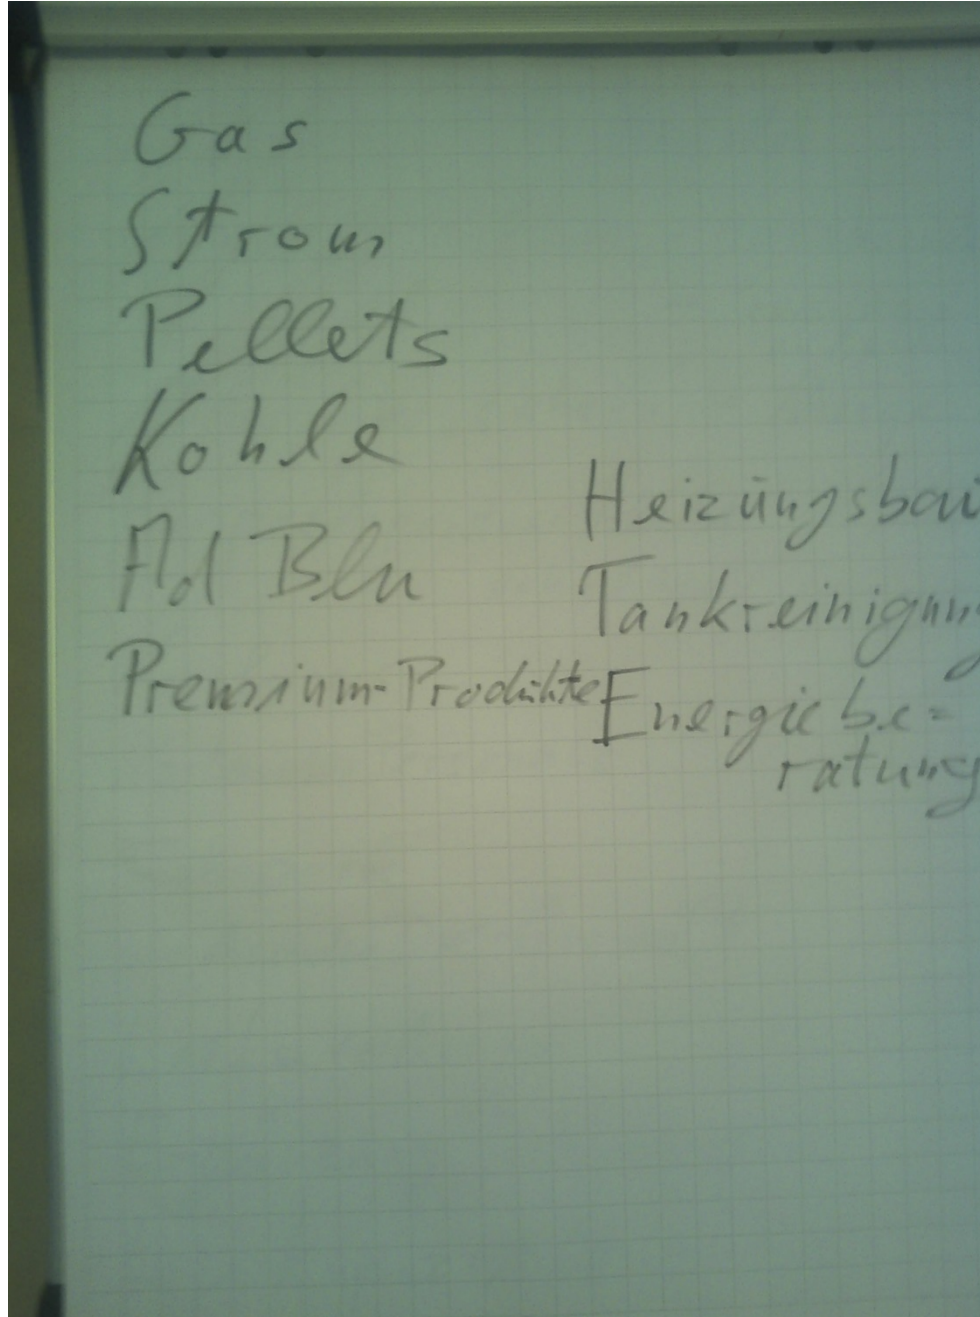 Gas
Strom
Pellets
Kohle
Ad Blu
Premium-Produkte
Heizungsbau
Tankreinigung
Energiebe=
ratung